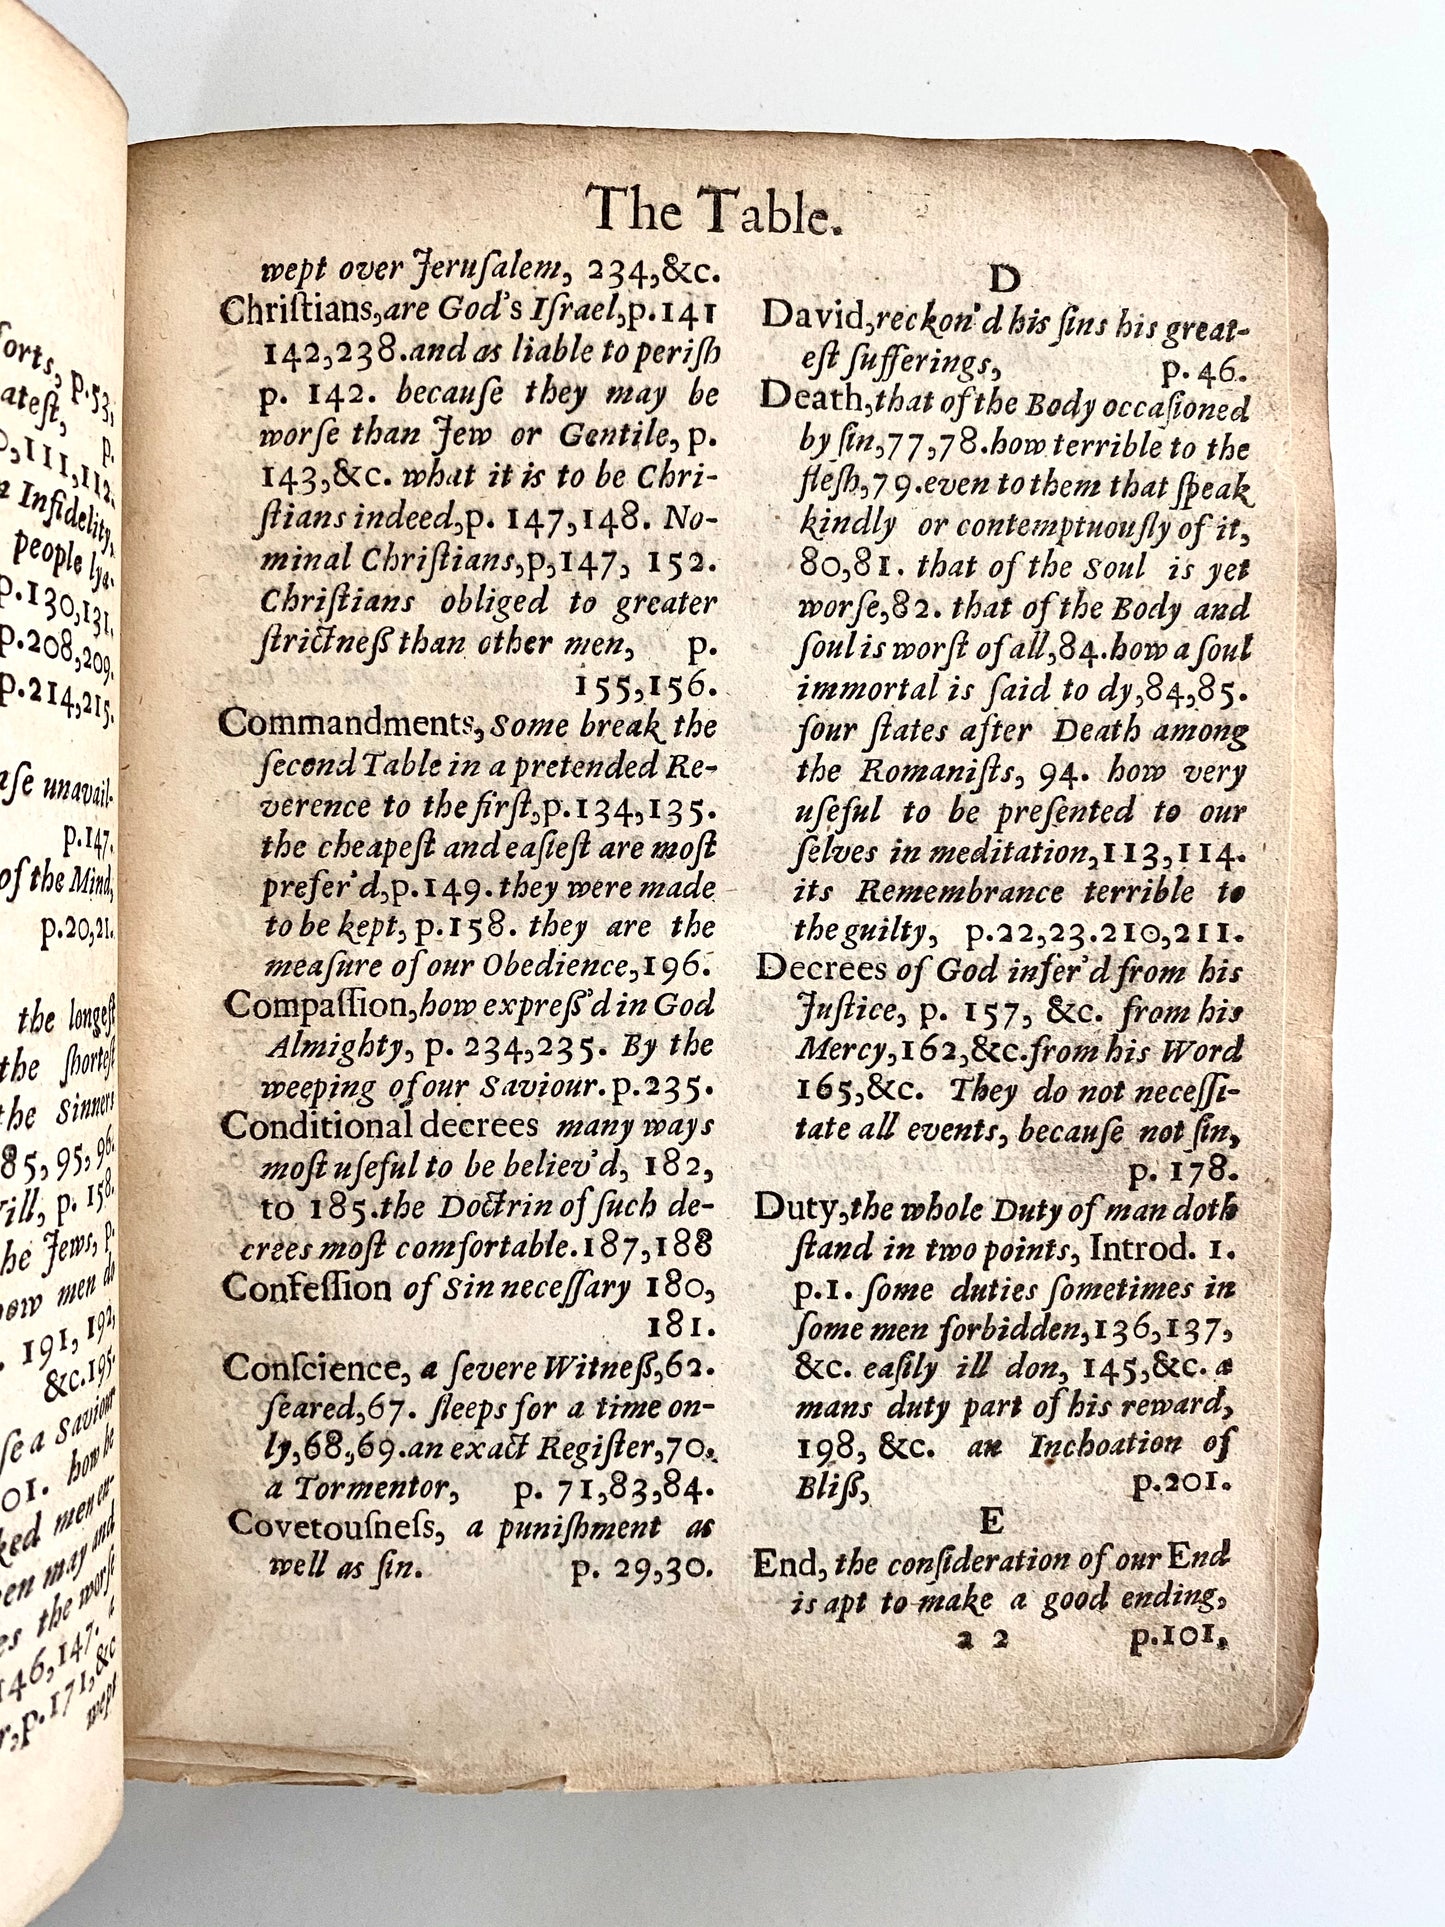 forts, p.53,
atest, p.
0,111,112.
Infidelity,
people lya-
p.130,131.
p.208,209.
p.214,215.
aſe unavail-
p.147.
of the Mind,
p.20,21.
the longeſt
the ſhorteſt
the Sinners
85,95,96.
Will, p. 158.
he Jews, p.
how men do
. 191, 192,
&c.195.
ſe a Saviour
01. how he
ked men en-
en may and
es the worſe
146,147.
r,p.171,&c
wept
The Table.
wept over Jeruſalem, 234,&c.
Chriſtians,are God's Iſrael,p.141
142,238.and as liable to periſh
p. 142. becauſe they may be
worſe than Jew or Gentile, p.
143,&c. what it is to be Chri-
ſtians indeed,p. 147,148. No-
minal Chriſtians,p,147, 152.
Chriſtians obliged to greater
ſtrictneß than other men, p.
155,156.
Commandments, some break the
ſecond Table in a pretended Re-
verence to the firſt,p.134,135.
the cheapeſt and eaſieſt are moſt
prefer'd,p.149.they were made
to be kept, p.158. they are the
meaſure of our Obedience,196.
Compaſſion,how expreß'd in God
Almighty, p. 234,235. By the
weeping of our Saviour.p.235.
Conditional decrees many ways
moſt uſeful to be believ'd, 182,
to 185.the Doctrin of ſuch de-
crees moſt comfortable.187,188
Confeſſion of Sin neceſſary 180,
181.
Conſcience, a ſevere Witneß,62.
ſeared,67. ſleeps for a time on-
ly,68,69.an exact Regiſter,70.
a Tormentor, p. 71,83,84.
Covetouſneſs, a puniſhment as
well as ſin. p. 29,30.
D
David,reckon'd his ſins his great-
eſt ſufferings, p. 46.
Death,that of the Body occaſioned
by ſin,77,78.how terrible to the
fleſh,79.even to them that ſpeak
kindly or contemptuouſly of it,
80,81. that of the Soul is yet
worſe,82. that of the Body and
ſoul is worſt of all,84.how a ſoul
immortal is ſaid to dy,84,85.
four ſtates after Death among
the Romaniſts, 94. how very
uſeful to be preſented to our
ſelves in meditation,113,114.
its Remembrance terrible to
the guilty, p.22,23.210,211.
Decrees of God infer'd from his
Juſtice, p. 157, &c. from his
Mercy,162,&c.from his Word
165,&c. They do not neceſſi-
tate all events, becauſe not ſin,
p. 178.
Duty,the whole Duty of man doth
ſtand in two points, Introd. 1.
p.1. ſome duties ſometimes in
ſome men forbidden,136,137,
&c. eaſily ill don, 145,&c. a
mans duty part of his reward,
198, &c. an Inchoation of
Bliß, p.201.
E
End, the conſideration of our End
is apt to make a good ending,
a 2 p.101.